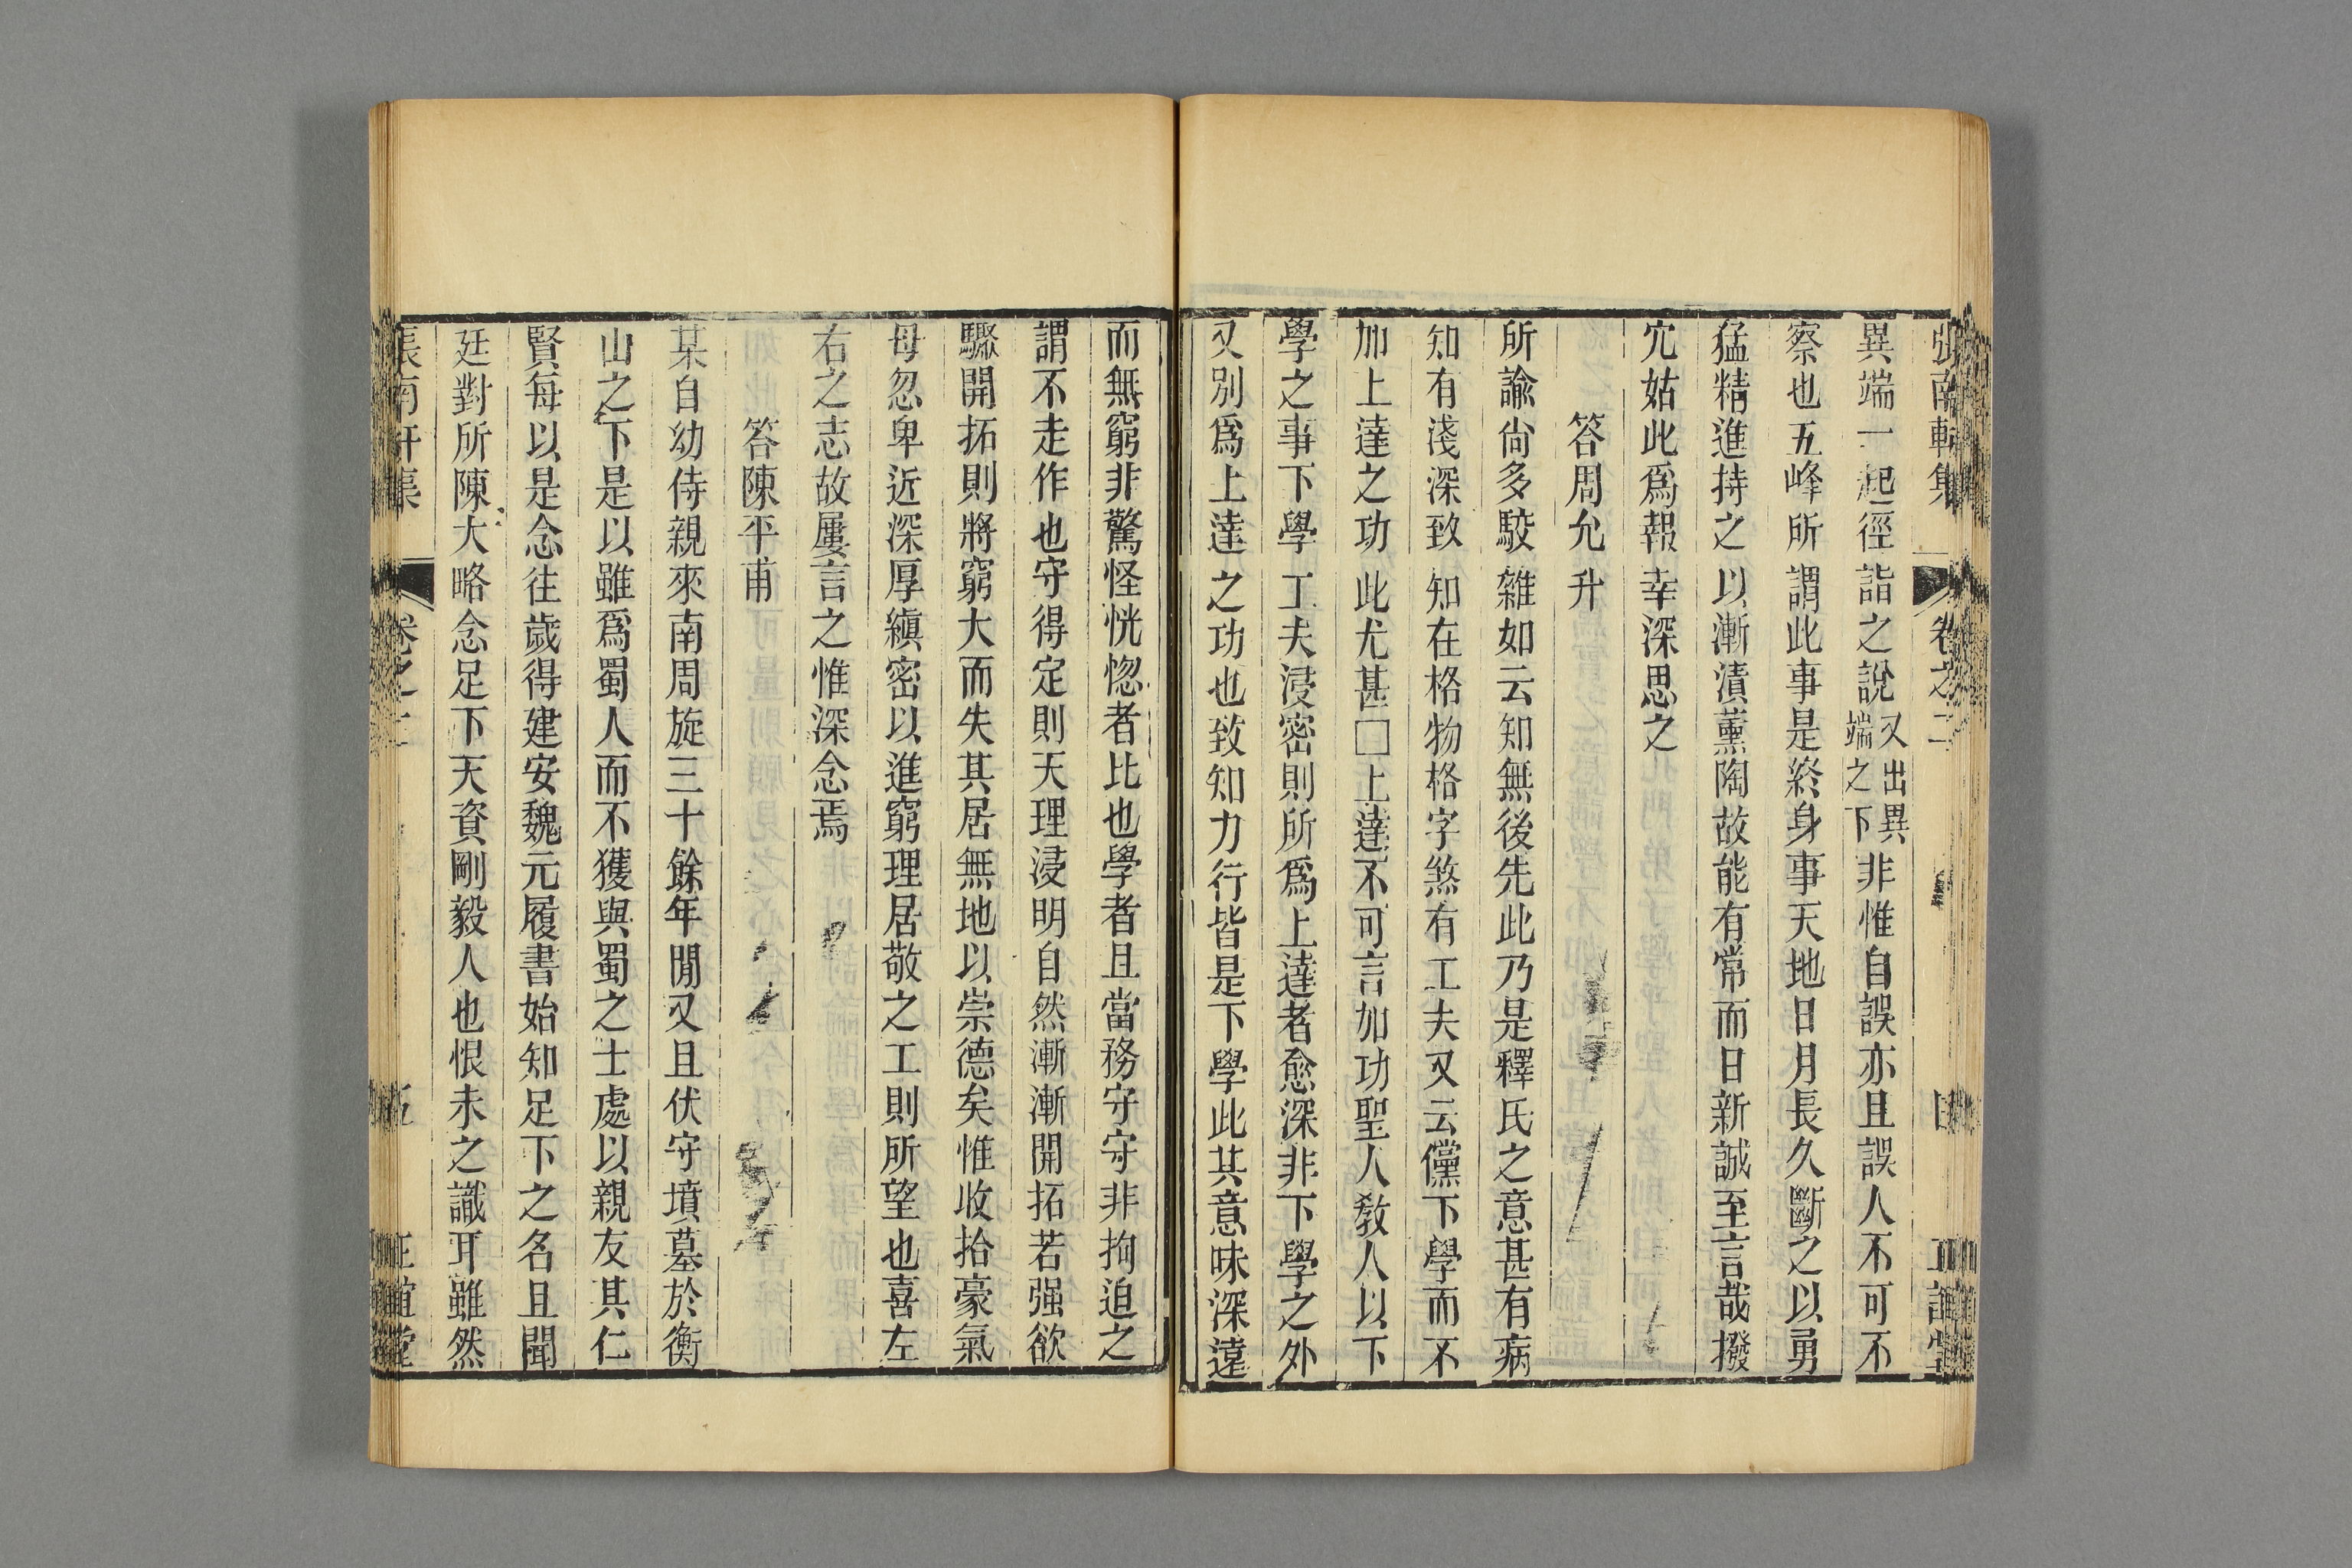 張南軒集 卷之二 四 正誼堂
異端一起徑詣之說又出異端之下非惟自誤亦且誤人不可不
察也五峰所謂此事是終身事天地日月長久斷之以勇
猛精進持之以漸漬薰陶故能有常而日新誠至言哉撥
冗姑此爲報幸深思之
答周允升
所諭尙多駮雜如云知無後先此乃是釋氏之意甚有病
知有淺深致知在格物格字煞有工夫又云儻下學而不
加上達之功此尤甚□上達不可言加功聖人敎人以下
學之事下學工夫浸密則所爲上達者愈深非下學之外
又別爲上達之功也致知力行皆是下學此其意味深遠
而無窮非驚怪恍惚者比也學者且當務守守非拘迫之
謂不走作也守得定則天理浸明自然漸漸開拓若强欲
驟開拓則將窮大而失其居無地以崇德矣惟收拾豪氣
母忽卑近深厚縝密以進窮理居敬之工則所望也喜左
右之志故屢言之惟深念焉
答陳平甫
某自幼侍親來南周旋三十餘年閒又且伏守墳墓於衡
山之下是以雖爲蜀人而不獲與蜀之士處以親友其仁
賢每以是念往歲得建安魏元履書始知足下之名且聞
廷對所陳大略念足下天資剛毅人也恨未之識耳雖然
張南軒集 卷之二 五 正誼堂